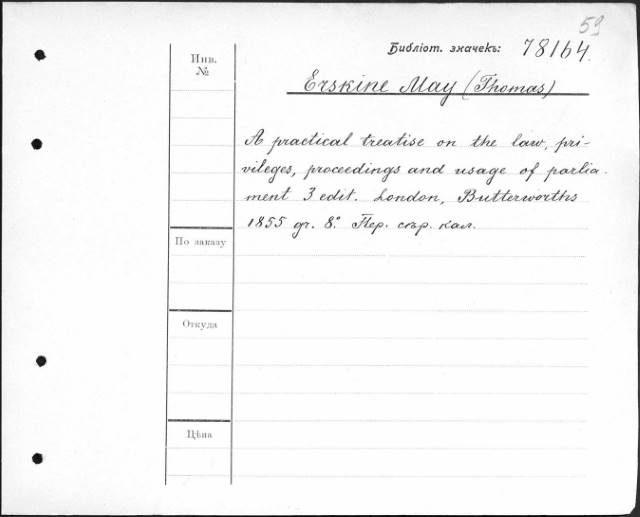 59
Библіот. значекъ: 78164.
Инв.
№
Erskine May (Thomas)
A practical treatise on the law, pri-
vileges, proceedings and usage of parlia-
ment 3 edit. London, Butterworths
1855 gr. 8º. Пер. сѣр. кал.
По заказу
Откуда
Цѣна